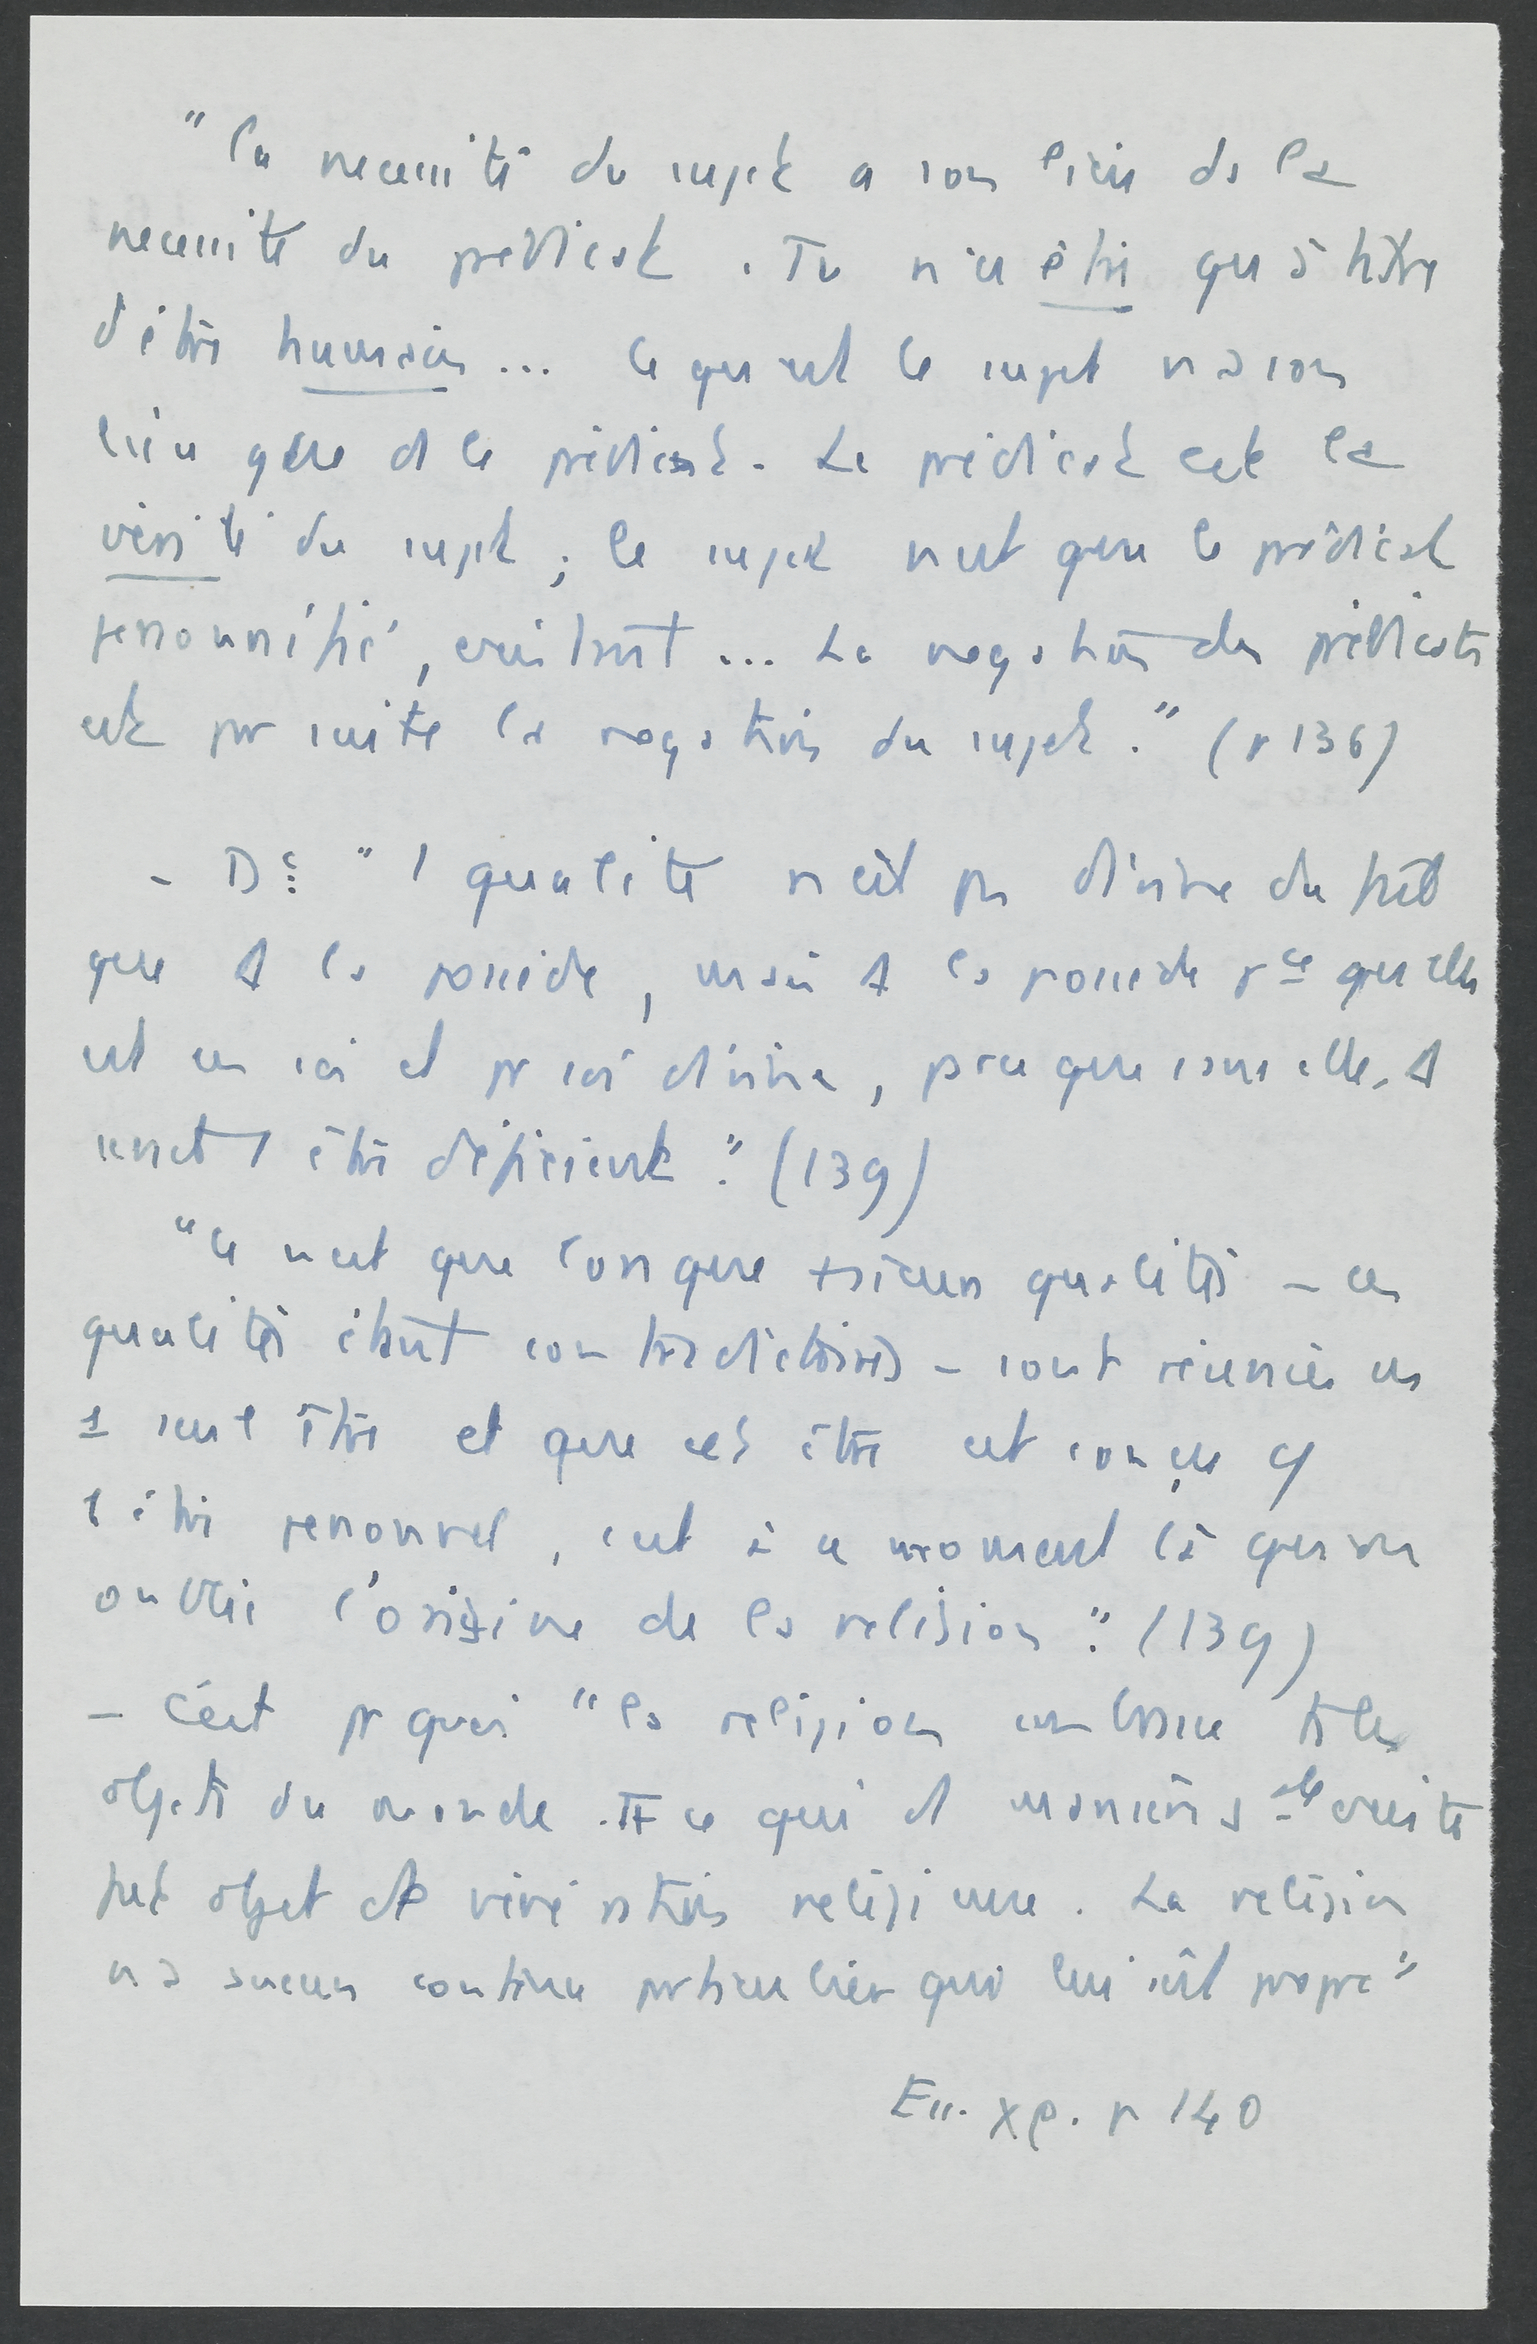 "la necessité du sujet a son lieu ds la
necessité du prédicat. Tu n'es être qu'à titre
d'être humain... Ce qu'est le sujet n'a son
lieu que ds le prédicat. Le prédicat est la
vérité du sujet ; le sujet n'est que le prédicat
personnifié, existant... La negation des prédicats
est par suite la negation du sujet." (p 136)
- Dc: "1 qualité n'est pas divine du fait
que Δ la possède, mais Δ la possède pce qu'elle
est en soi et pr soi divine, parce que sans elle, Δ
serait 1 être déficient." (139)
"Ce n'est que lorsque +sieurs qualités - ces
qualités étant contradictoires - sont réunies en
1 seul être et que cet être est conçu cf
1 être personnel, c'est à ce moment là qu'on
oublie l'origine de la religion." (139)
- C'est pr quoi "la religion embrasse ts les
objets du monde. Tt ce qui d manière gle existe
fut objet de vénération religieuse. La religion
n'a aucun contenu particulier qui lui soit propre"
Ess. Xe. p 140